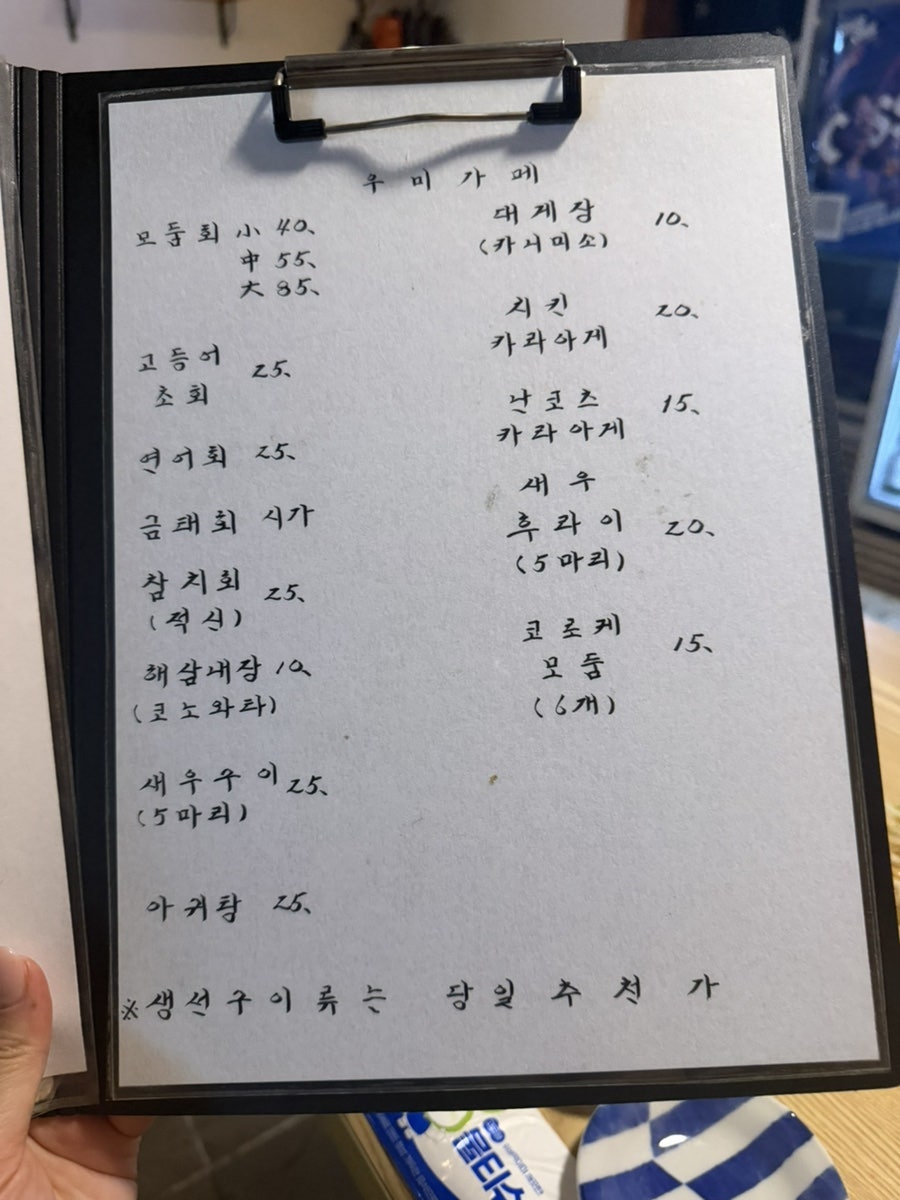 우미가메
모둠회 小 40、
中 55、
大 85、
고등어
초회 25、
연어회 25、
금태회 시가
참치회
(적신) 25、
해삼내장 10、
(코노와타)
새우구이 25、
(5마리)
아귀탕 25、
대게장
(카니미소) 10、
치킨
카라아게 20、
난코츠
카라아게 15、
새우
후라이 20、
(5마리)
코로케
모둠 15、
(6개)
※생선구이류는 당일 추천 가
물티슈